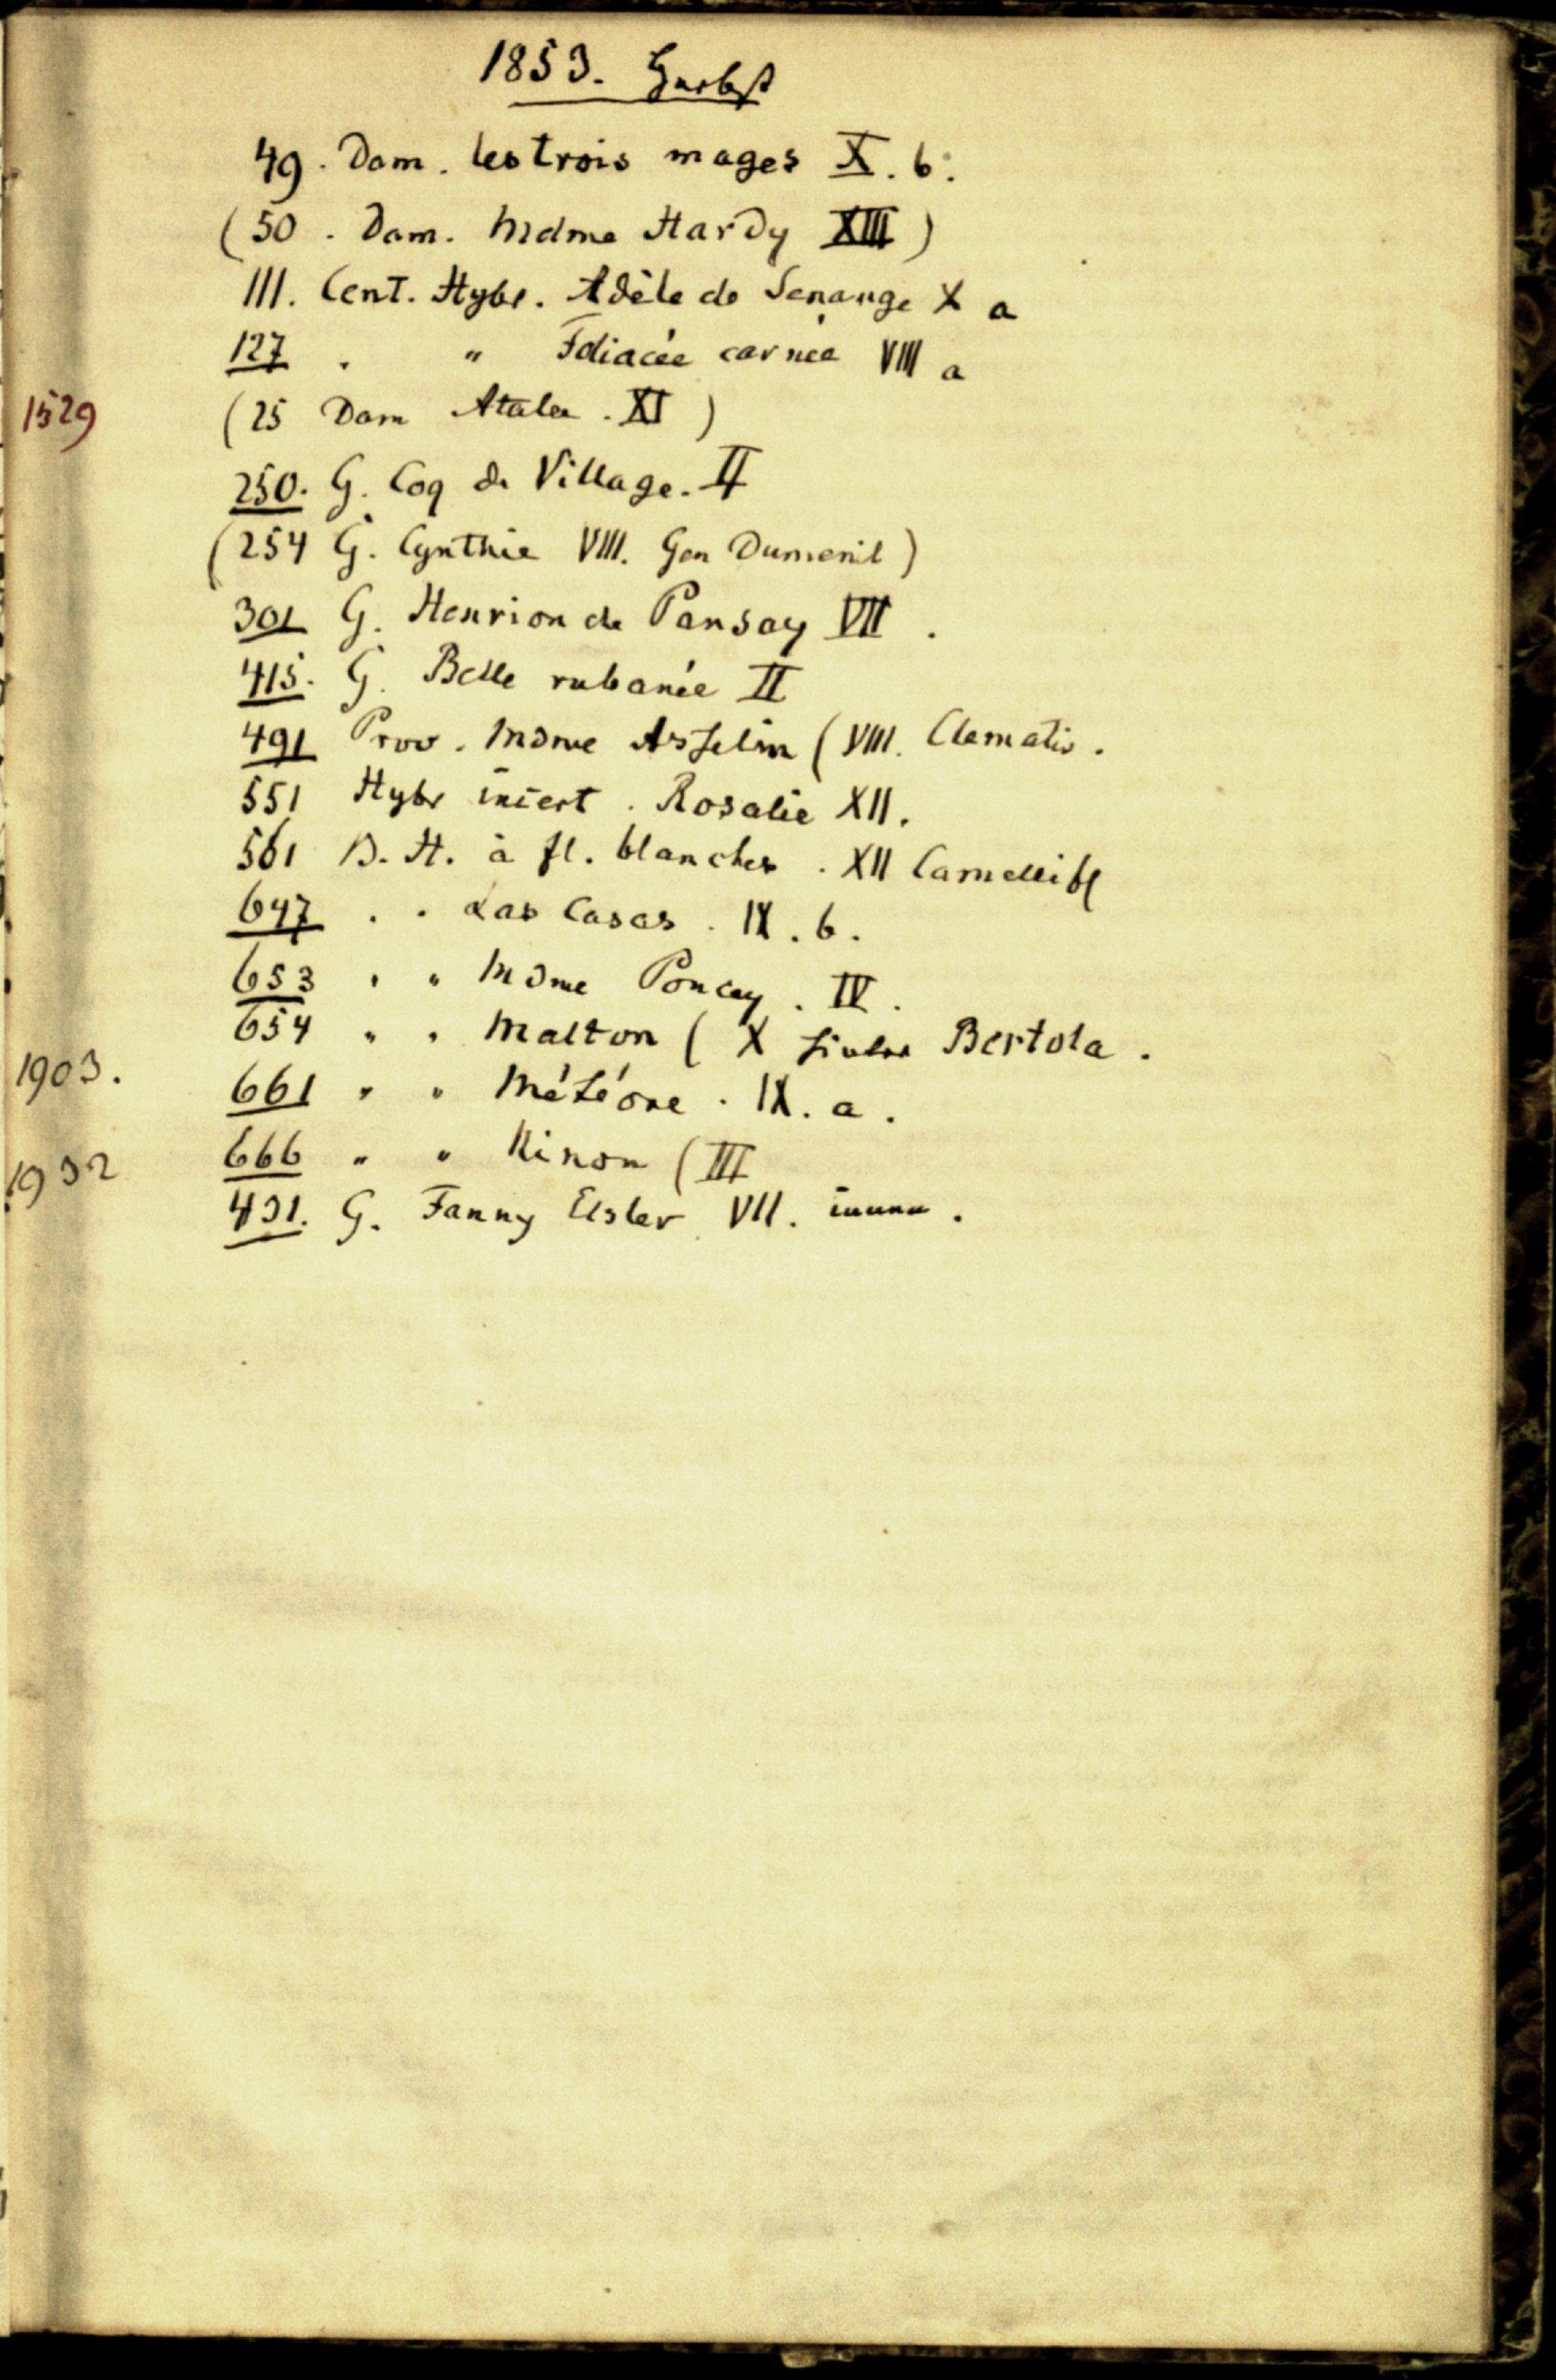 1853. Herbst
49. Dam. les trois mages X. b.
(50. Dam. Mdme Hardy XIII)
111. Cent. Hybr. Adèle de Senange X a
127 . " Foliacée carnée VIII a
1529 (25 Dam Atala. XI)
250. G. Coq de Village. II
(254 G. Cynthie VIII. Gen Dumenil)
301 G. Henrion de Pansay VII.
415. G. Belle rubanée II
491 Prov. Mdme Asselin (VIII. Clematis.
551 Hybr incert. Rosalie XII.
561 B. H. à fl. blanches. XII Camellifl
647 . . Las Casas. IX. b.
653 " " Mdme Poncey. IV.
654 " " Malton (X Bertola.
1903. 661 " " Météore. IX. a.
1932 666 " " Ninon (III
431. G. Fanny Elsler VII.